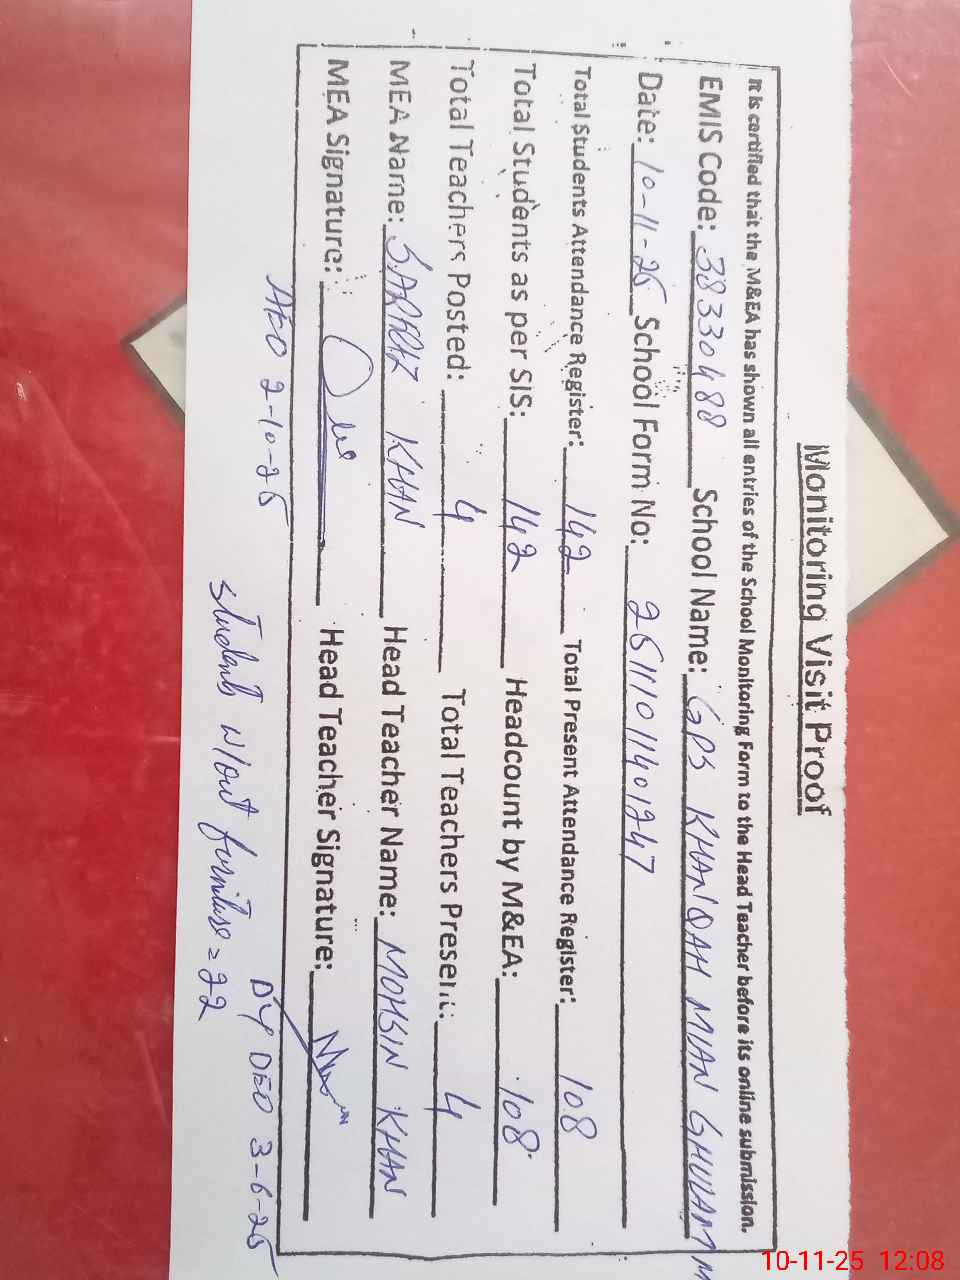 Monitoring Visit Proof
It is certified that the M&EA has shown all entries of the School Monitoring Form to the Head Teacher before its online submission.
EMIS Code: 38330488 School Name: GPS KHANQAH MIAN GHULAM M
Date: 10-11-25 School Form No: 25111011401247
Total Students Attendance Register: 142 Total Present Attendance Register: 108
Total Students as per SIS: 142 Headcount by M&EA: 108
Total Teachers Posted: 4 Total Teachers Present: 4
MEA Name: SARFRAZ KHAN Head Teacher Name: MOHSIN KHAN
MEA Signature: Head Teacher Signature:
AEO 2-10-25 DY DEO 3-6-25
students w/out furniture = 22
10-11-25 12:08